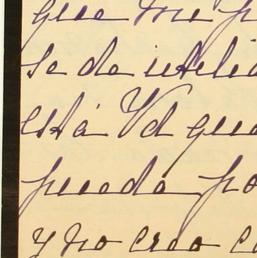 que me p
se da utili
está Vd que
pueda po
y no creo c